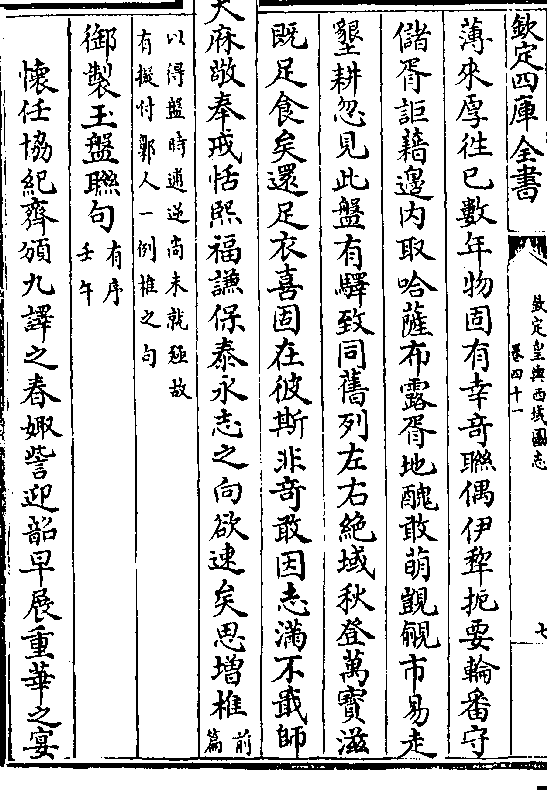 欽定四庫全書
欽定皇輿西域圖志
卷四十一
七
薄來厚往已數年物固有幸奇聯偶伊犂扼要輪番守
儲胥詎藉邊内取哈薩布露胥地醜敢萌覬覦市易走
墾耕忽見此盤有驛致同舊列左右絶域秋登萬寳滋
既足食矣還足衣喜固在彼斯非奇敢因志滿不戢師
大庥敬奉戒恬熙福謙保泰永志之向欲速矣思增椎前篇
以得盤時逋逆尚未就殛故
有擬付鄴人一例椎之句
御製玉盤聯句有序
壬午
懐任協紀齊頒九譯之春娵訾迎韶早展重華之宴